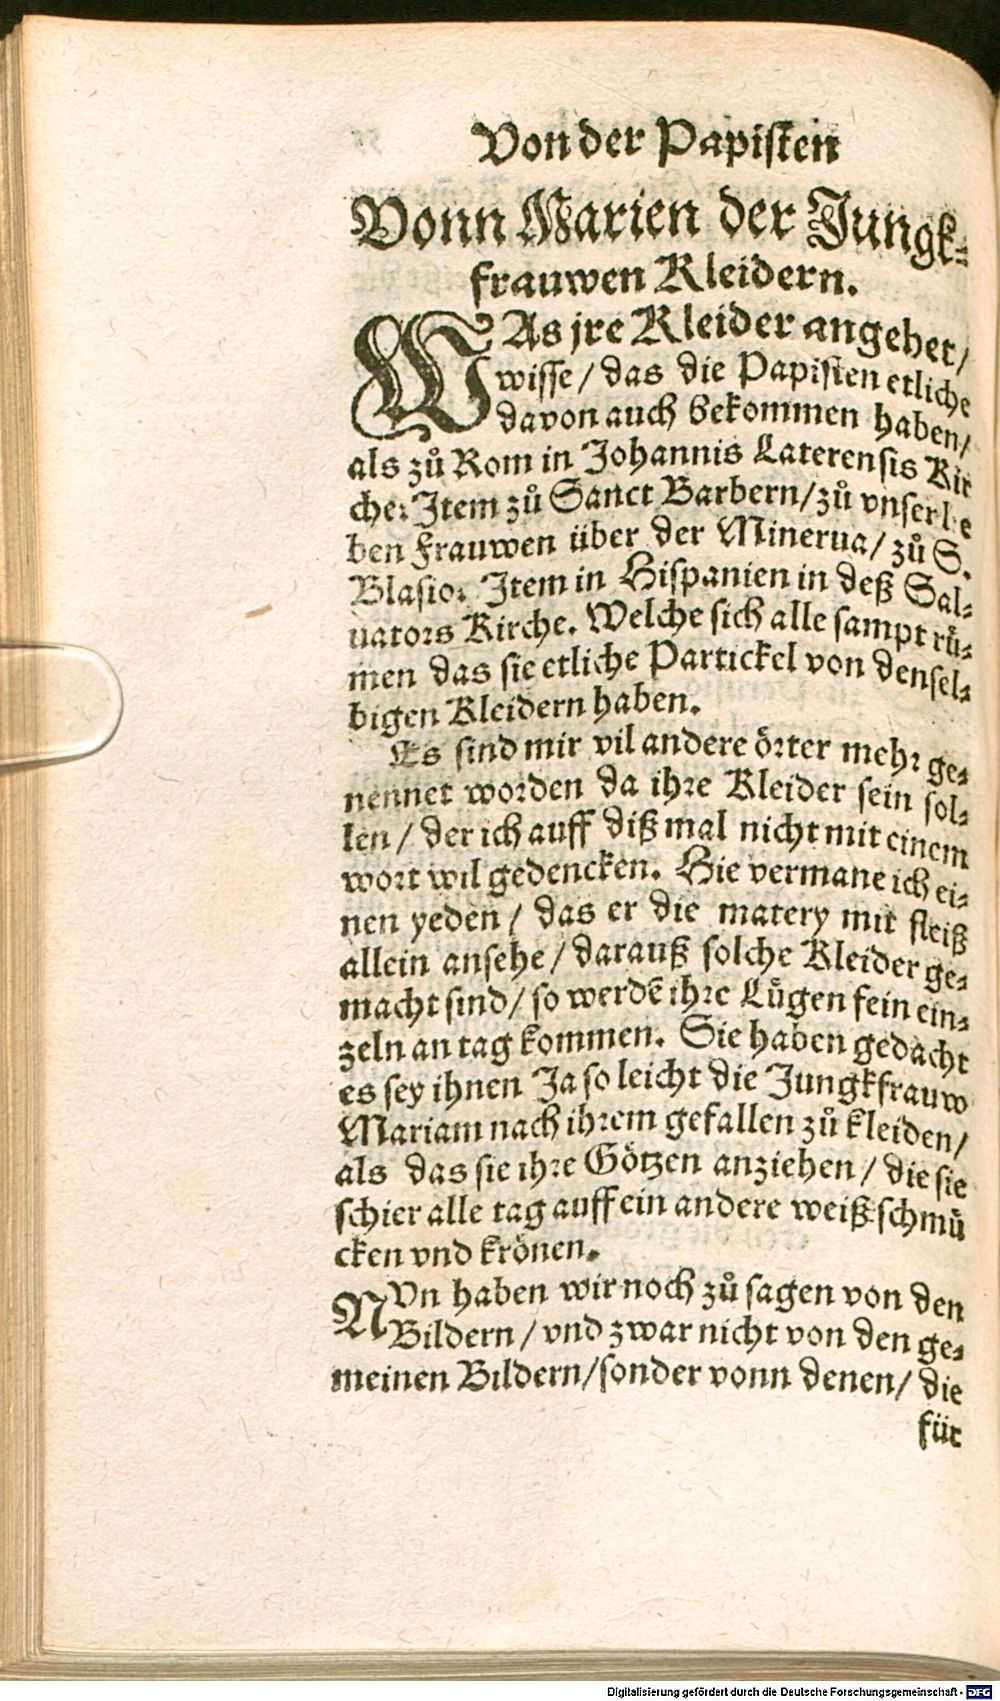 Von der Papisten
Vonn Marien der Jungk⸗
frauwen Kleidern.
WAs jre Kleider angehet/
wisse/ das die Papisten etliche
davon auch bekommen haben/
als zů Rom in Johannis Laterensis Kir
che: Item zů Sanct Barbern/ zů vnser lie
ben Frauwen über der Minerua/ zů S.
Blasio: Item in Hispanien in deß Sal⸗
uators Kirche. Welche sich alle sampt rů⸗
men das sie etliche Partickel von densel⸗
bigen Kleidern haben.
Es sind mir vil andere örter mehr ge⸗
nennet worden da ihre Kleider sein sol⸗
len/ der ich auff diß mal nicht mit einem
wort wil gedencken. Hie vermane ich ei⸗
nen yeden/ das er die matery mit fleiß
allein ansehe/ darauß solche Kleider ge⸗
macht sind/ so werdē ihre Lügen fein ein⸗
zeln an tag kommen. Sie haben gedacht
es sey ihnen Ja so leicht die Jungkfrauw
Mariam nach ihrem gefallen zů kleiden/
als das sie ihre Götzen anziehen/ die sie
schier alle tag auff ein andere weiß schmü
cken vnd krönen.
NVn haben wir noch zů sagen von den
Bildern/ vnd zwar nicht von den ge⸗
meinen Bildern/ sonder vonn denen/ die
für
Digitalisierung gefördert durch die Deutsche Forschungsgemeinschaft - DFG